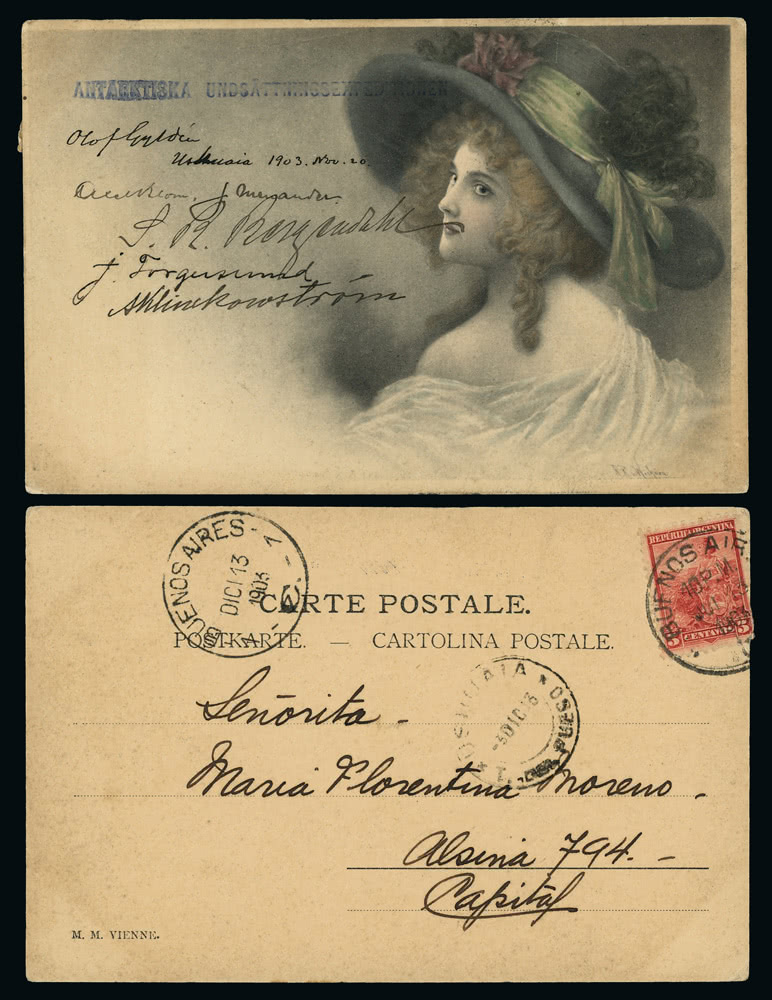 ANTARKTISKA UNDSÄTTNINGSEXPEDITIONEN
Olof Gyldén
Ushuaia 1903. Nov. 20.
Axel Blom. J. Menander.
S. R. Bergendahl
J. Torgersruud
AKlinckowström
BUENOS AIRES - 1
DICI 13
1903
CARTE POSTALE.
POSTKARTE. — CARTOLINA POSTALE.
REPUBLICA ARGENTINA
5 CENTAVOS 5
BUENOS AIR
USHUAIA
3 DI 03
Señorita -
Maria Florentina Moreno -
Alsina 794. -
Capital
M. M. VIENNE.